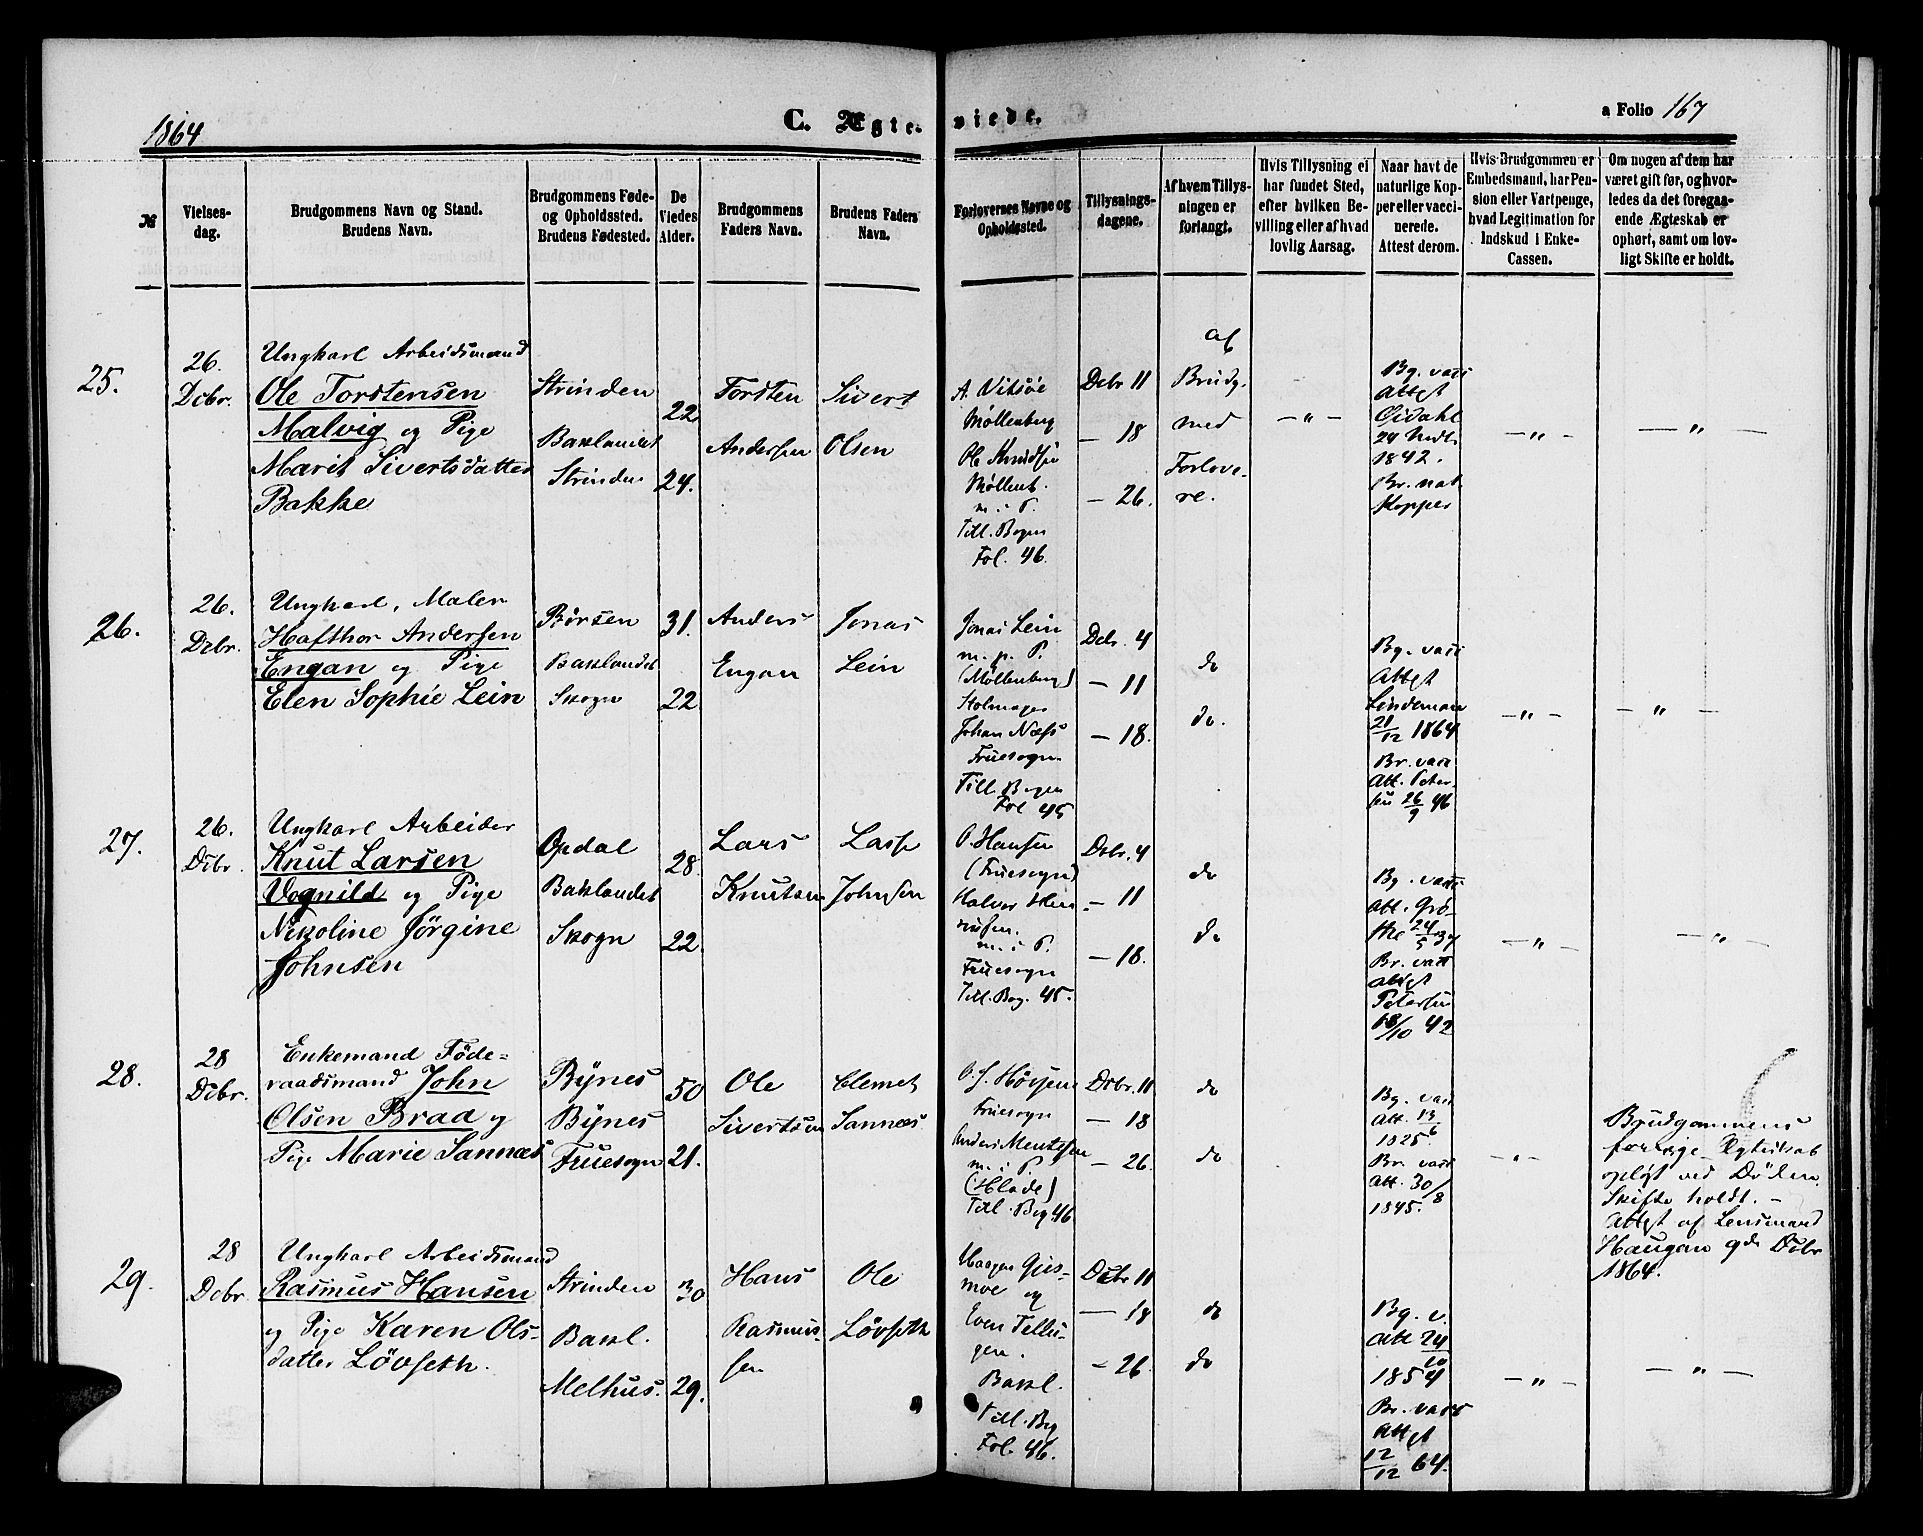 1864
C. Ægte-
viede.
a Folio 167
№
Vielses-
dag.
Brudgommens Navn og Stand.
Brudens Navn.
Brudgommens Føde-
og Opholdssted.
Brudens Fødested.
De
Viedes
Alder.
Brudgommens
Faders Navn.
Brudens Faders
Navn.
Forlovernes Navne og
Opholdssted.
Tillysnings-
dagene.
Af hvem Tillys-
ningen er
forlangt.
Hvis Tillysning ei
har fundet Sted,
efter hvilken Be-
villing eller af hvad
lovlig Aarsag.
Naar havt de
naturlige Kop-
per eller vacci-
nerede.
Attest derom.
Hvis Brudgommen er
Embedsmand, har Pen-
sion eller Vartpenge,
hvad Legitimation for
Indskud i Enke-
Cassen.
Om nogen af dem har
været gift før, og hvor-
ledes da det foregaa-
ende Ægteskab er
ophørt, samt om lov-
ligt Skifte er holdt.
25.
26.
Dcbr.
Ungkarl Arbeidsmand
Ole Torstensen
Malvig og Pige
Marit Sivertsdatter
Bakke
Strinden
Baklandet
Strinden
22
24.
Torsten
Andersen
Sivert
Olsen
A. Vitsøe
Møllenberg
Ole Knudsen
Møllenb.
m. i P.
Till. Bogen
Fol. 46.
Dcbr 11
— 18
— 26.
af
Brudg.
med
Forlove-
re.
— " —
Bg. vacc
Attest
Øidahl
1842.
Br. nat.
Kopper
— " —
— " —
26.
26.
Dcbr.
Ungkarl, Maler
Hafthor Andersen
Engan og Pige
Elen Sophie Lein
Børsen
Baklandet
Skogn
31.
22
Anders
Engan
Jonas
Lein
Jonas Lein
m. p. P.
(Møllenberg)
Johan Næss
Fruesogn
Till. Bogen
Fol 45
Dcbr. 4
— 11
— 18.
do
do.
Bg. vacc
Attest
Lindeman
21/12 1864
Br. vacc
Att. Peter-
sen 26/9 46
— " —
— " —
27.
26.
Dcbr.
Ungkarl Arbeider
Knut Larsen
Vognild og Pige
Nikoline Jørgine
Johnsen
Opdal
Baklandet
Skogn
28.
22.
Lars
Knutsen
Lasse
Johnsen
O. Hansen
(Fruesogn)
Halvor Hen-
riksen.
m. i P.
Fruesogn
Till. Bog. 45.
Dcbr. 4
— 11
— 18.
do
do
Bg. vacc
Att. Grø-
the 24/5 37
Br. vacc
Attest
Petersen
18/10 42
— " —
— " —
28.
28
Dcbr.
Enkemand Føde-
raadsmand John
Olsen Braa og
Pige Marie Sannæs
Bynes
Bynes
Fruesogn
50
21.
Ole
Sivertsen
Clemet
Sannæs
Fruesogn
Anders Mentzsen
m. i P.
(Hlade)
Till. Bog 46
Dcbr. 11
— 18
— 26.
do
do
Bg. vacc
Att. 13/6
1825
Br. vacc
Att. 30/8
1845.
— " —
Brudgommens
forrige Ægteskab
opløst ved Døden.
Skifte holdt. —
Attest af Lensmand
Haugan 9de Dcbr
1864.
29.
28
Dcbr.
Ungkarl Arbeidsmand
Rasmus Hansen
og Pige Karen Ols-
datter Løvseth.
Strinden
Bakl.
Melhus.
30
29.
Hans
Rasmus-
sen
Ole
Løvseth
Haagen Gies-
moe og
Even Tellu-
gen.
Bakl.
Till. Bog
Fol. 46.
Dcbr 11
— 18
— 26.
do
do
Bg. v.
Att 24/10
1854
Br. vacc
Attest
12/12 64.
— " —
— " —